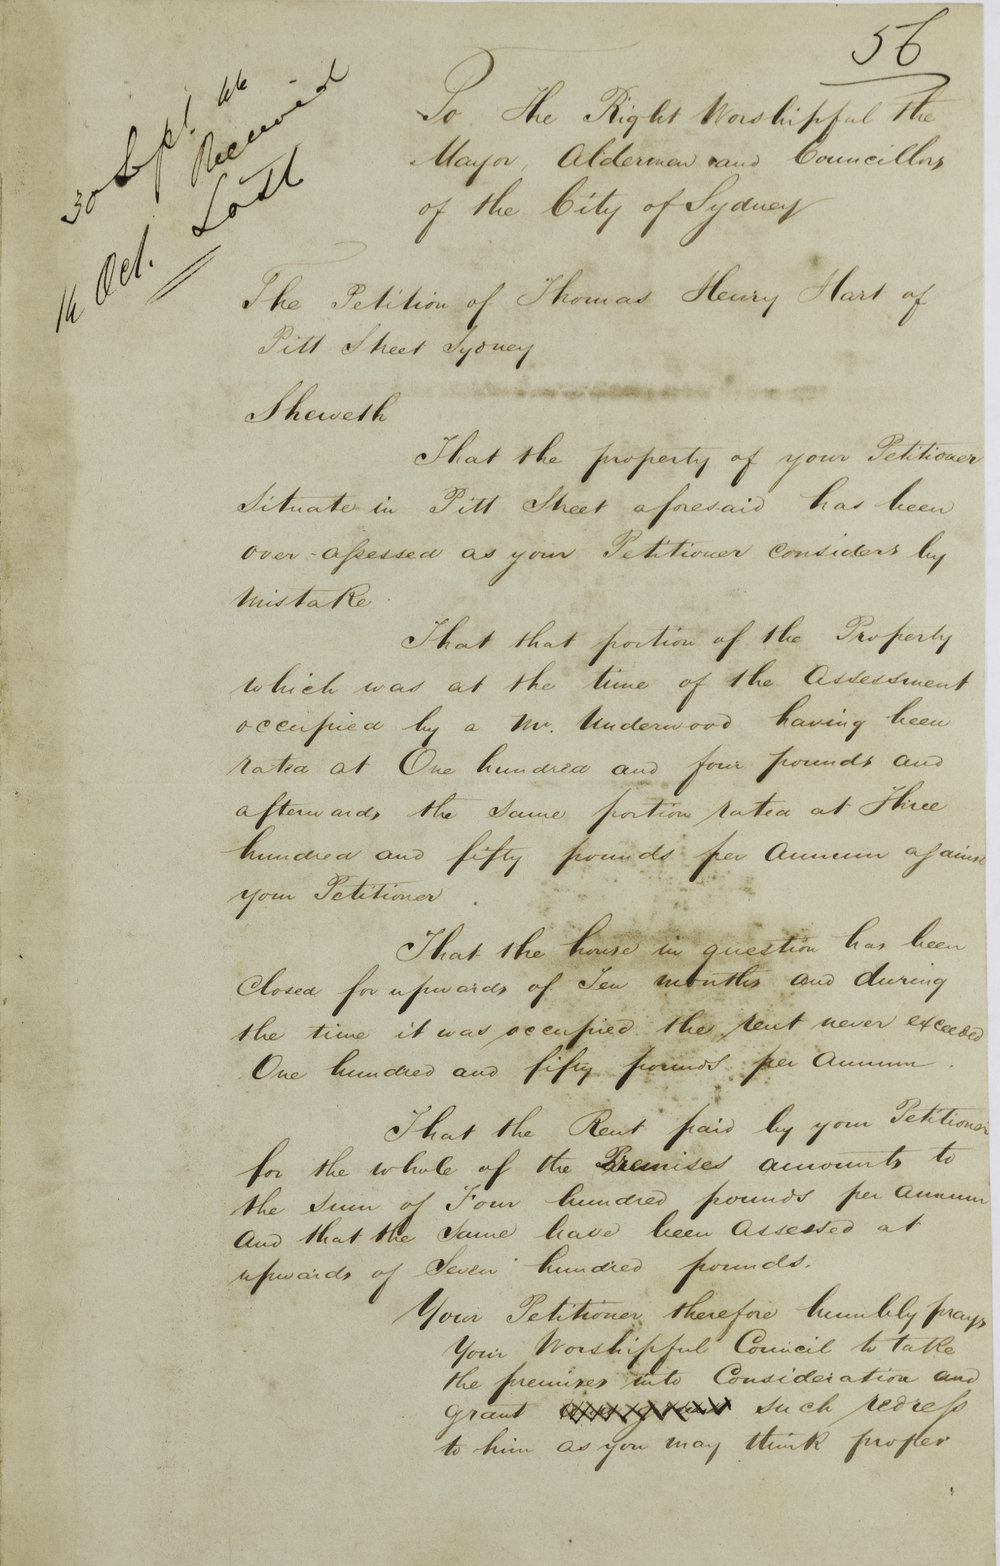 56
30 Sept. 44
Received
14 Oct. Lost
To The Right Worshipful the
Mayor, Aldermen and Councillors
of the City of Sydney
The Petition of Thomas Henry Hart of
Pitt Street Sydney
Sheweth
That the property of your Petitioner
Situate in Pitt Street aforesaid has been
over-assessed as your Petitioner considers by
mistake.
That that portion of the Property
which was at the time of the Assessment
occupied by a Mr. Underwood having been
rated at One hundred and four pounds and
afterwards the same portion rated at Three
hundred and fifty pounds per Annum against
your Petitioner.
That the house in question has been
Closed for upwards of Ten months and during
the time it was occupied the rent never exceeded
One hundred and fifty pounds per Annum.
That the Rent paid by your Petitioner
for the whole of the Premises amounts to
the sum of Four hundred pounds per annum
And that the Same have been Assessed at
upwards of Seven hundred pounds.
Your Petitioner therefore humbly prays
Your Worshipful Council to take
the premises into Consideration and
grant such redress
to him as you may think proper